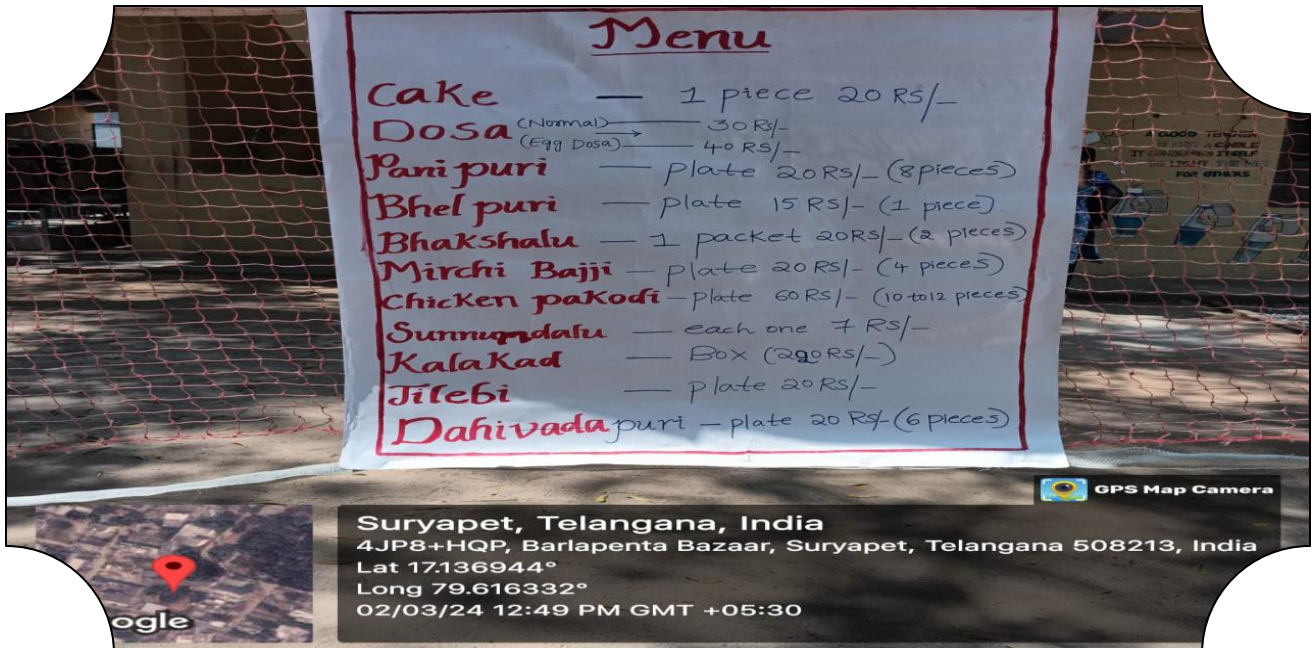 Menu
Cake — 1 piece 20 RS/-
Dosa (Normal) — 30 Rs/-
(Egg Dosa) → 40 RS/-
Pani puri — plate 20 RS/- (8 pieces)
Bhel puri — plate 15 RS/- (1 piece)
Bhakshalu — 1 packet 20RS/- (2 pieces)
Mirchi Bajji — plate 20 RS/- (4 pieces)
Chicken pakodi — plate 60 RS/- (10 to 12 pieces)
Sunnundalu — each one 7 RS/-
KalaKad — Box (290 RS/-)
Jilebi — plate 20 RS/-
Dahivada puri — plate 20 RS/- (6 pieces)
A GOOD TEACHER
IS LIKE A CANDLE
IT CONSUMES ITSELF
FOR OTHERS
GPS Map Camera
Suryapet, Telangana, India
4JP8+HQP, Barlapenta Bazaar, Suryapet, Telangana 508213, India
Lat 17.136944°
Long 79.616332°
02/03/24 12:49 PM GMT +05:30
ogle